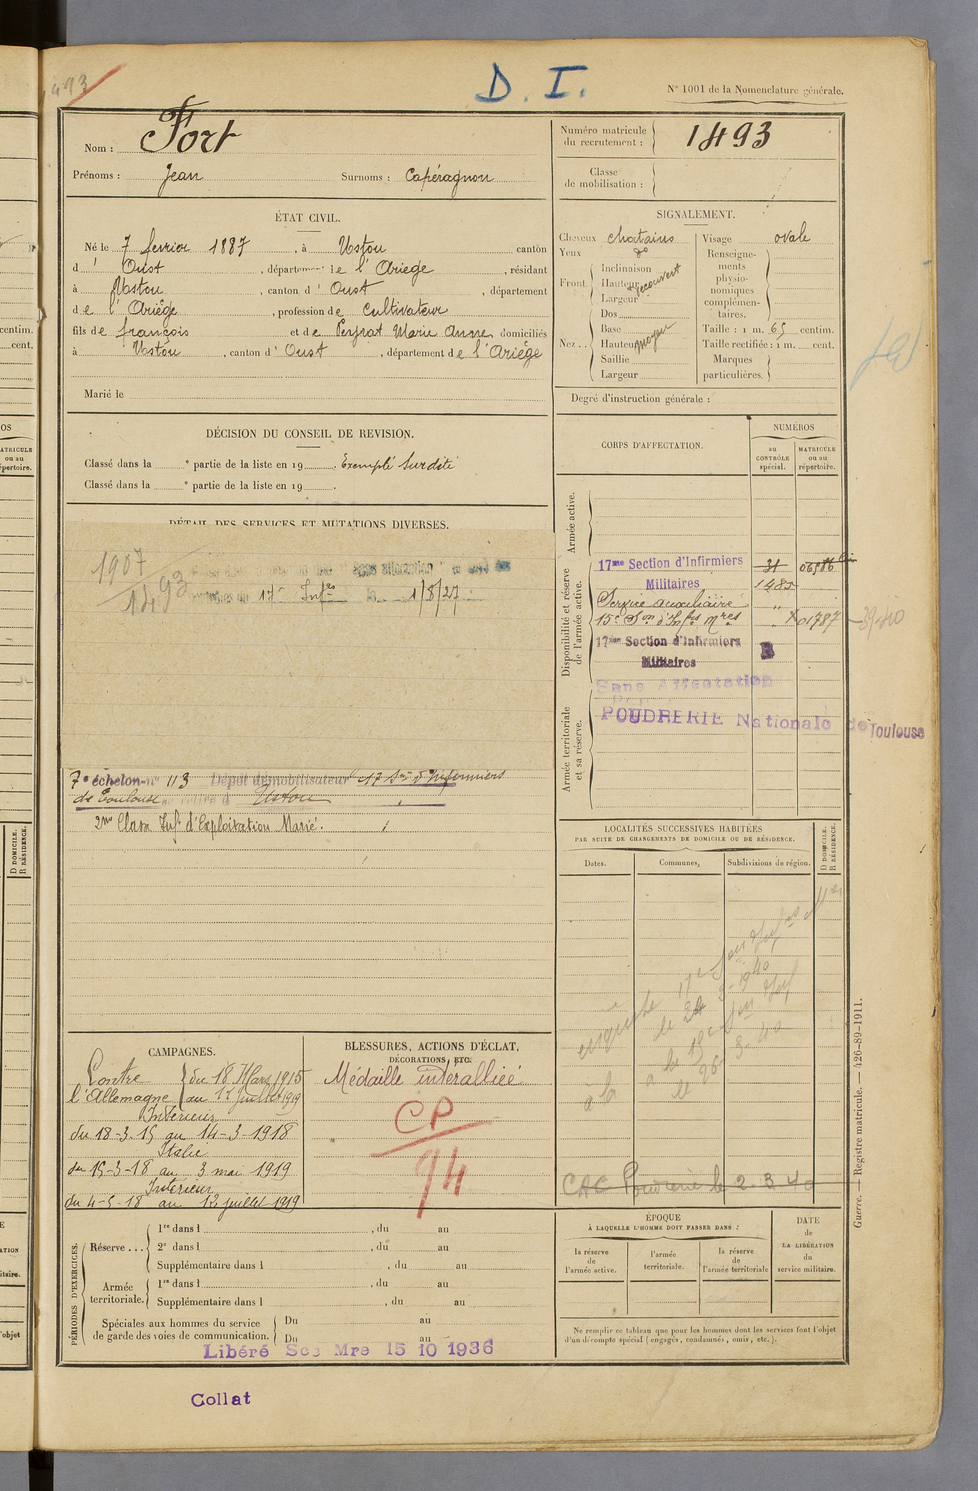 493
D. I.
N° 1001 de la Nomenclature générale.
Nom : Fort
Prénoms : Jean Surnoms : Capéragnou
Numéro matricule du recrutement : 1493
Classe de mobilisation :
ÉTAT CIVIL.
Né le 7 fevrier 1887, à Ustou canton
d' Oust, département de l'Ariège, résidant
à Ustou, canton d' Oust, département
de l'Ariège, profession de cultivateur
fils de françois et de Peyrat Marie Anne domiciliés
à Ustou, canton d' Oust, département de l'Ariège
Marié le
SIGNALEMENT.
Cheveux chatains
Yeux do
Front. Inclinaison
Hauteur
Largeur
découvert
Nez . . Dos
Base
Hauteur
Saillie
Largeur
moyen
Visage ovale
Renseignements physionomiques complémentaires.
Taille : 1 m. 65 centim.
Taille rectifiée : 1 m. cent.
Marques particulières.
Degré d'instruction générale :
DÉCISION DU CONSEIL DE REVISION.
Classé dans la e partie de la liste en 19 . Exempté Surdité
Classé dans la e partie de la liste en 19 .
DÉTAIL DES SERVICES ET MUTATIONS DIVERSES.
1907
1493
affectation
17e Infres 1/8/27
7e échelon n° 113 Dépôt démobilisateur 17 Son d'Infirmiers
de Toulouse se retire à Ustou
2me Classe Inf. d'Exploitation Marié.
CORPS D'AFFECTATION.
NUMÉROS
au CONTRÔLE spécial.
MATRICULE ou au répertoire.
Armée active.
Disponibilité et réserve de l'armée active.
Armée territoriale et sa réserve.
17me Section d'Infirmiers 31 06586
Militaires 1482
Service auxiliaire "
15e Son d'Infrs Mres " 01787 39/40
17me Section d'Infirmiers
Militaires
Sans Affectation
POUDRERIE Nationale de Toulouse
LOCALITÉS SUCCESSIVES HABITÉES
PAR SUITE DE CHANGEMENTS DE DOMICILE OU DE RÉSIDENCE.
Dates. Communes, Subdivisions de région. D DOMICILE. R RÉSIDENCE.
le 24 3-1940
CAC Poudrerie le 2.3.40
CAMPAGNES.
Contre l'Allemagne du 18 Mars 1915 au 12 juillet 1919
Intérieur
du 18-3-15 au 14-3-1918
Italie
du 15-3-18 au 3 mai 1919
Intérieur
du 4-5-18 au 12 juillet 1919
BLESSURES, ACTIONS D'ÉCLAT,
DÉCORATIONS, ETC.
Médaille interalliée
CP
94
PÉRIODES D'EXERCICES.
Réserve . . .
1re dans l , du au
2e dans l , du au
Supplémentaire dans l , du au
Armée territoriale.
1re dans l , du au
Supplémentaire dans l , du au
Spéciales aux hommes du service de garde des voies de communication.
Du au
Du au
Libéré Sce Mre 15 10 1936
ÉPOQUE
À LAQUELLE L'HOMME DOIT PASSER DANS :
la réserve de l'armée active.
l'armée territoriale.
la réserve de l'armée territoriale
DATE de LA LIBÉRATION du service militaire.
Ne remplir ce tableau que pour les hommes dont les services font l'objet
d'un décompte spécial (engagés, condamnés, omis, etc.).
Guerre. — Registre matricule. — 426-89-1911.
Collat